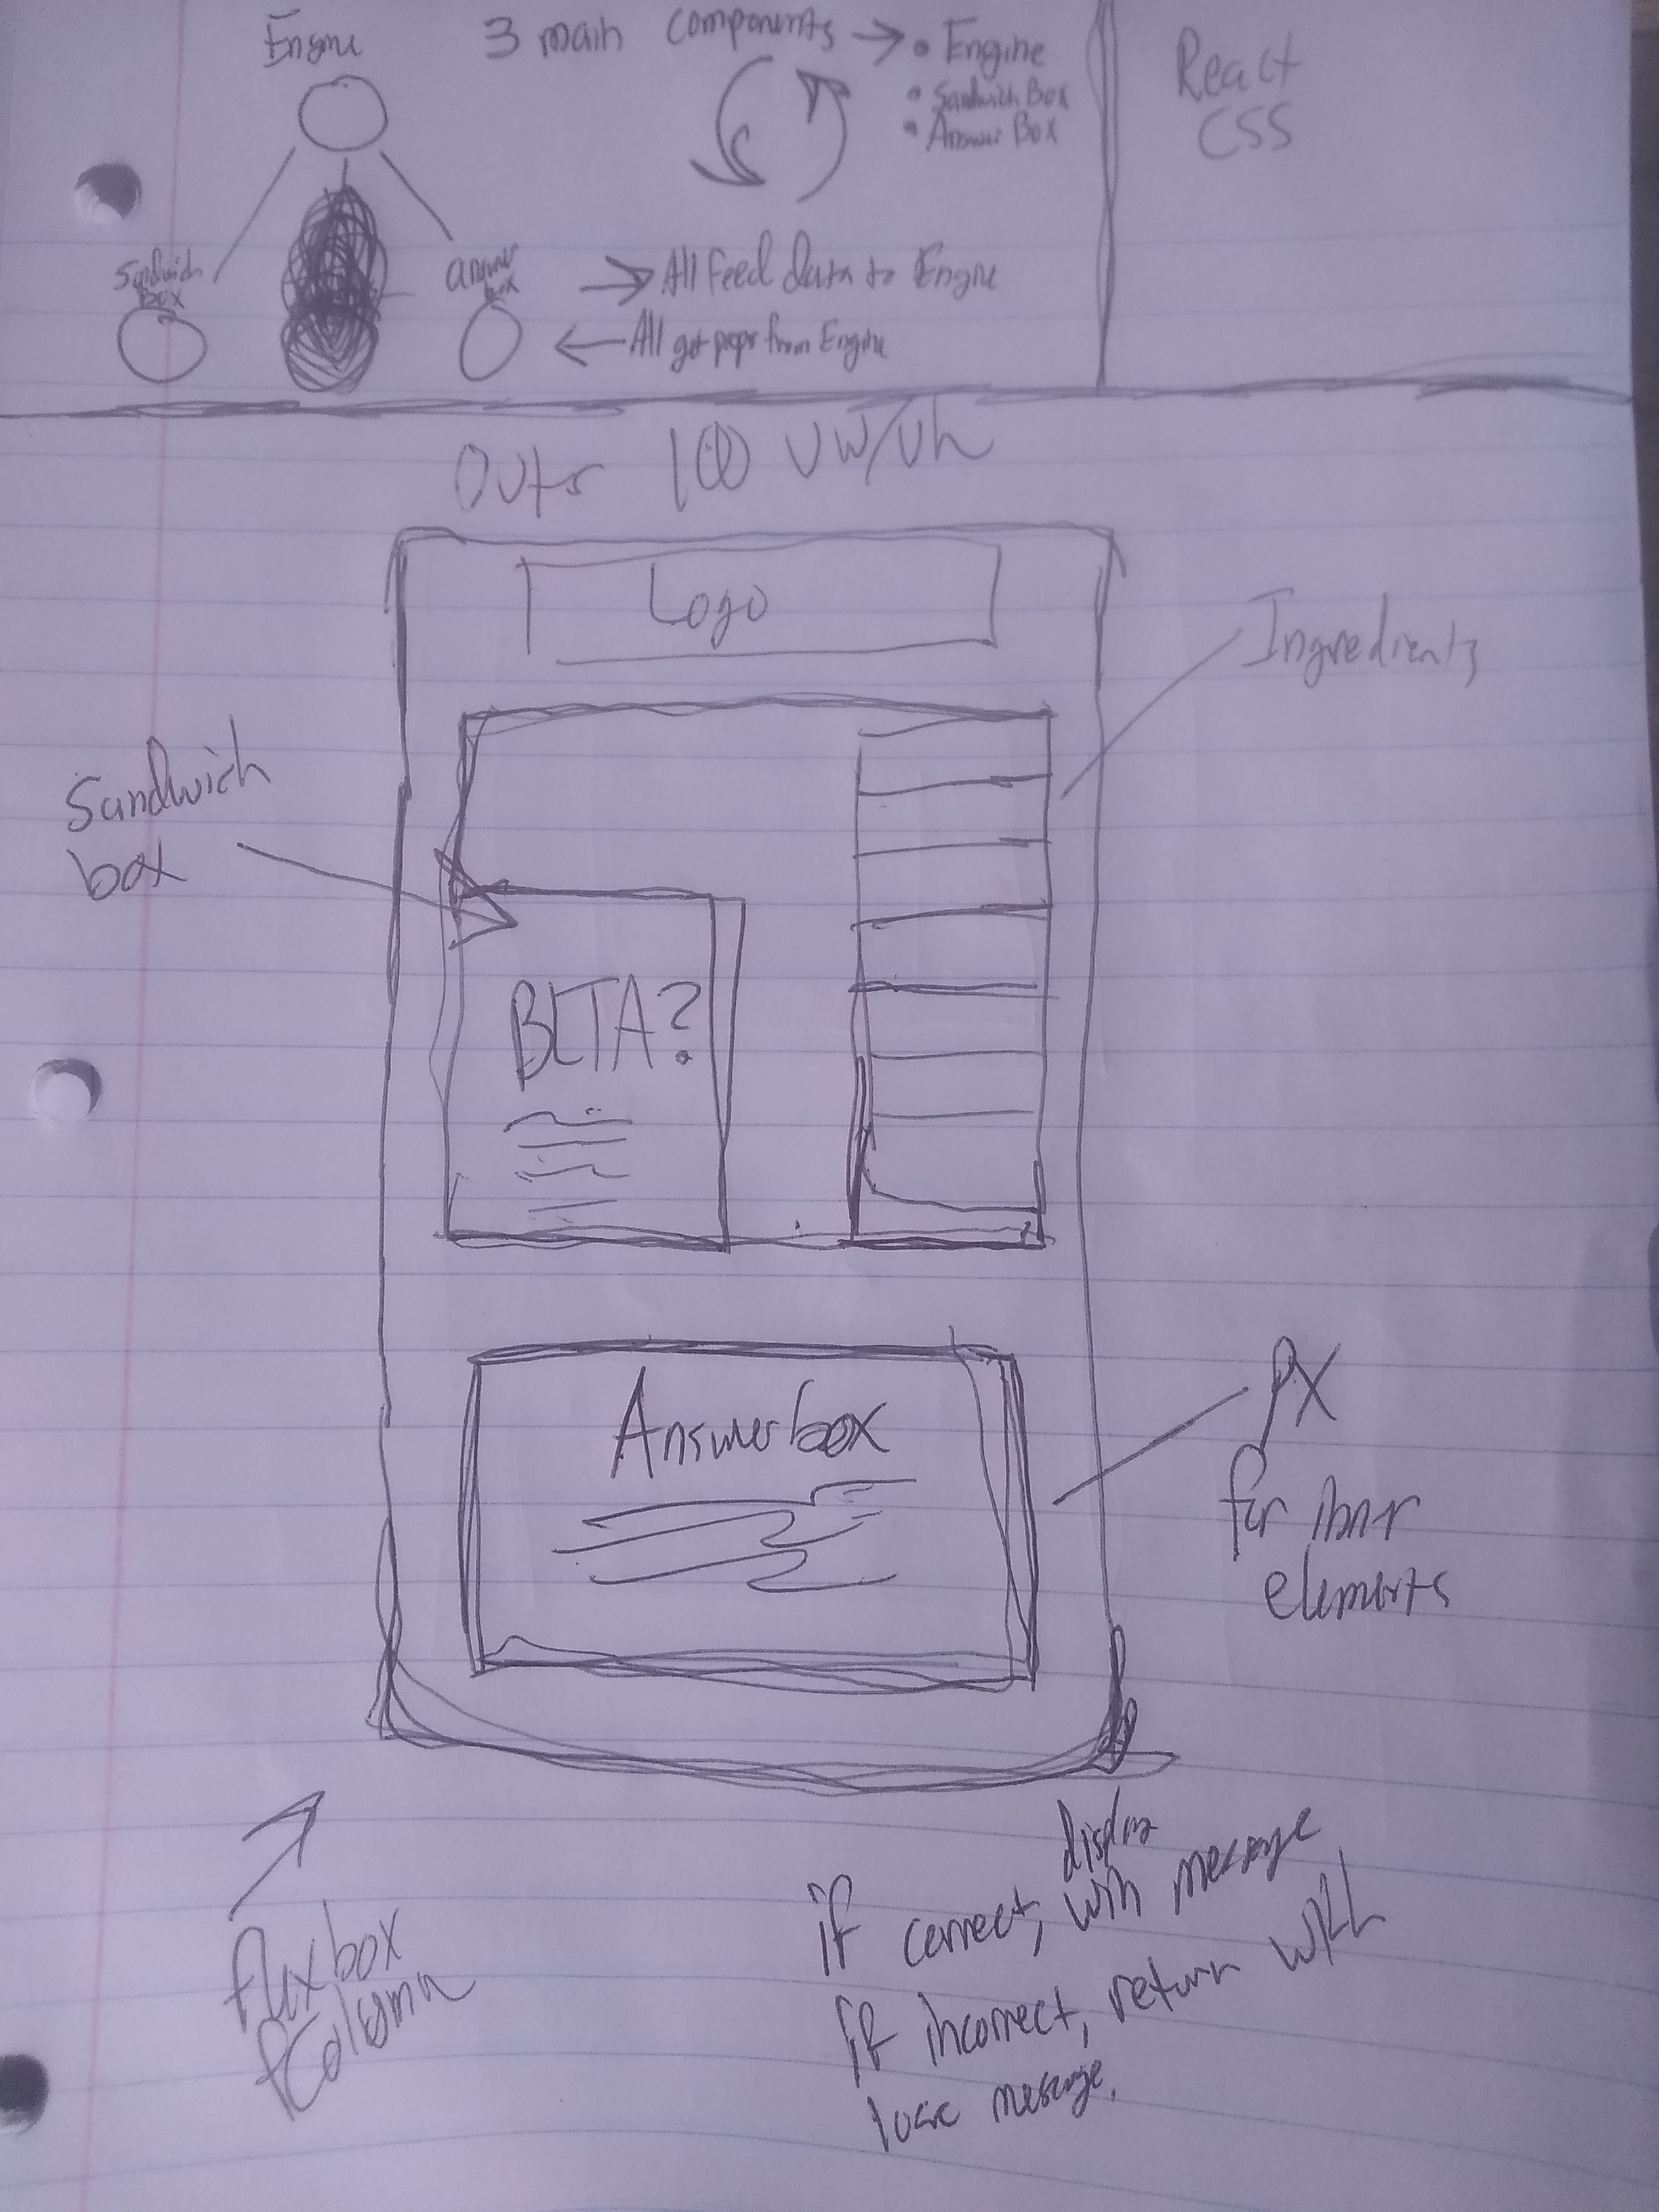 Engine
3 main components → • Engine
• Sandwich Box
• Answer Box
React
CSS
Sandwich
box
answer
box
→ All feed data to Engine
← All get props from Engine
Outer 100 vw/vh
Logo
Ingredients
Sandwich
box
BLTA?
Answerbox
PX
for inner
elements
flexbox
column
if correct, display
with message
if incorrect, return with
lose message.